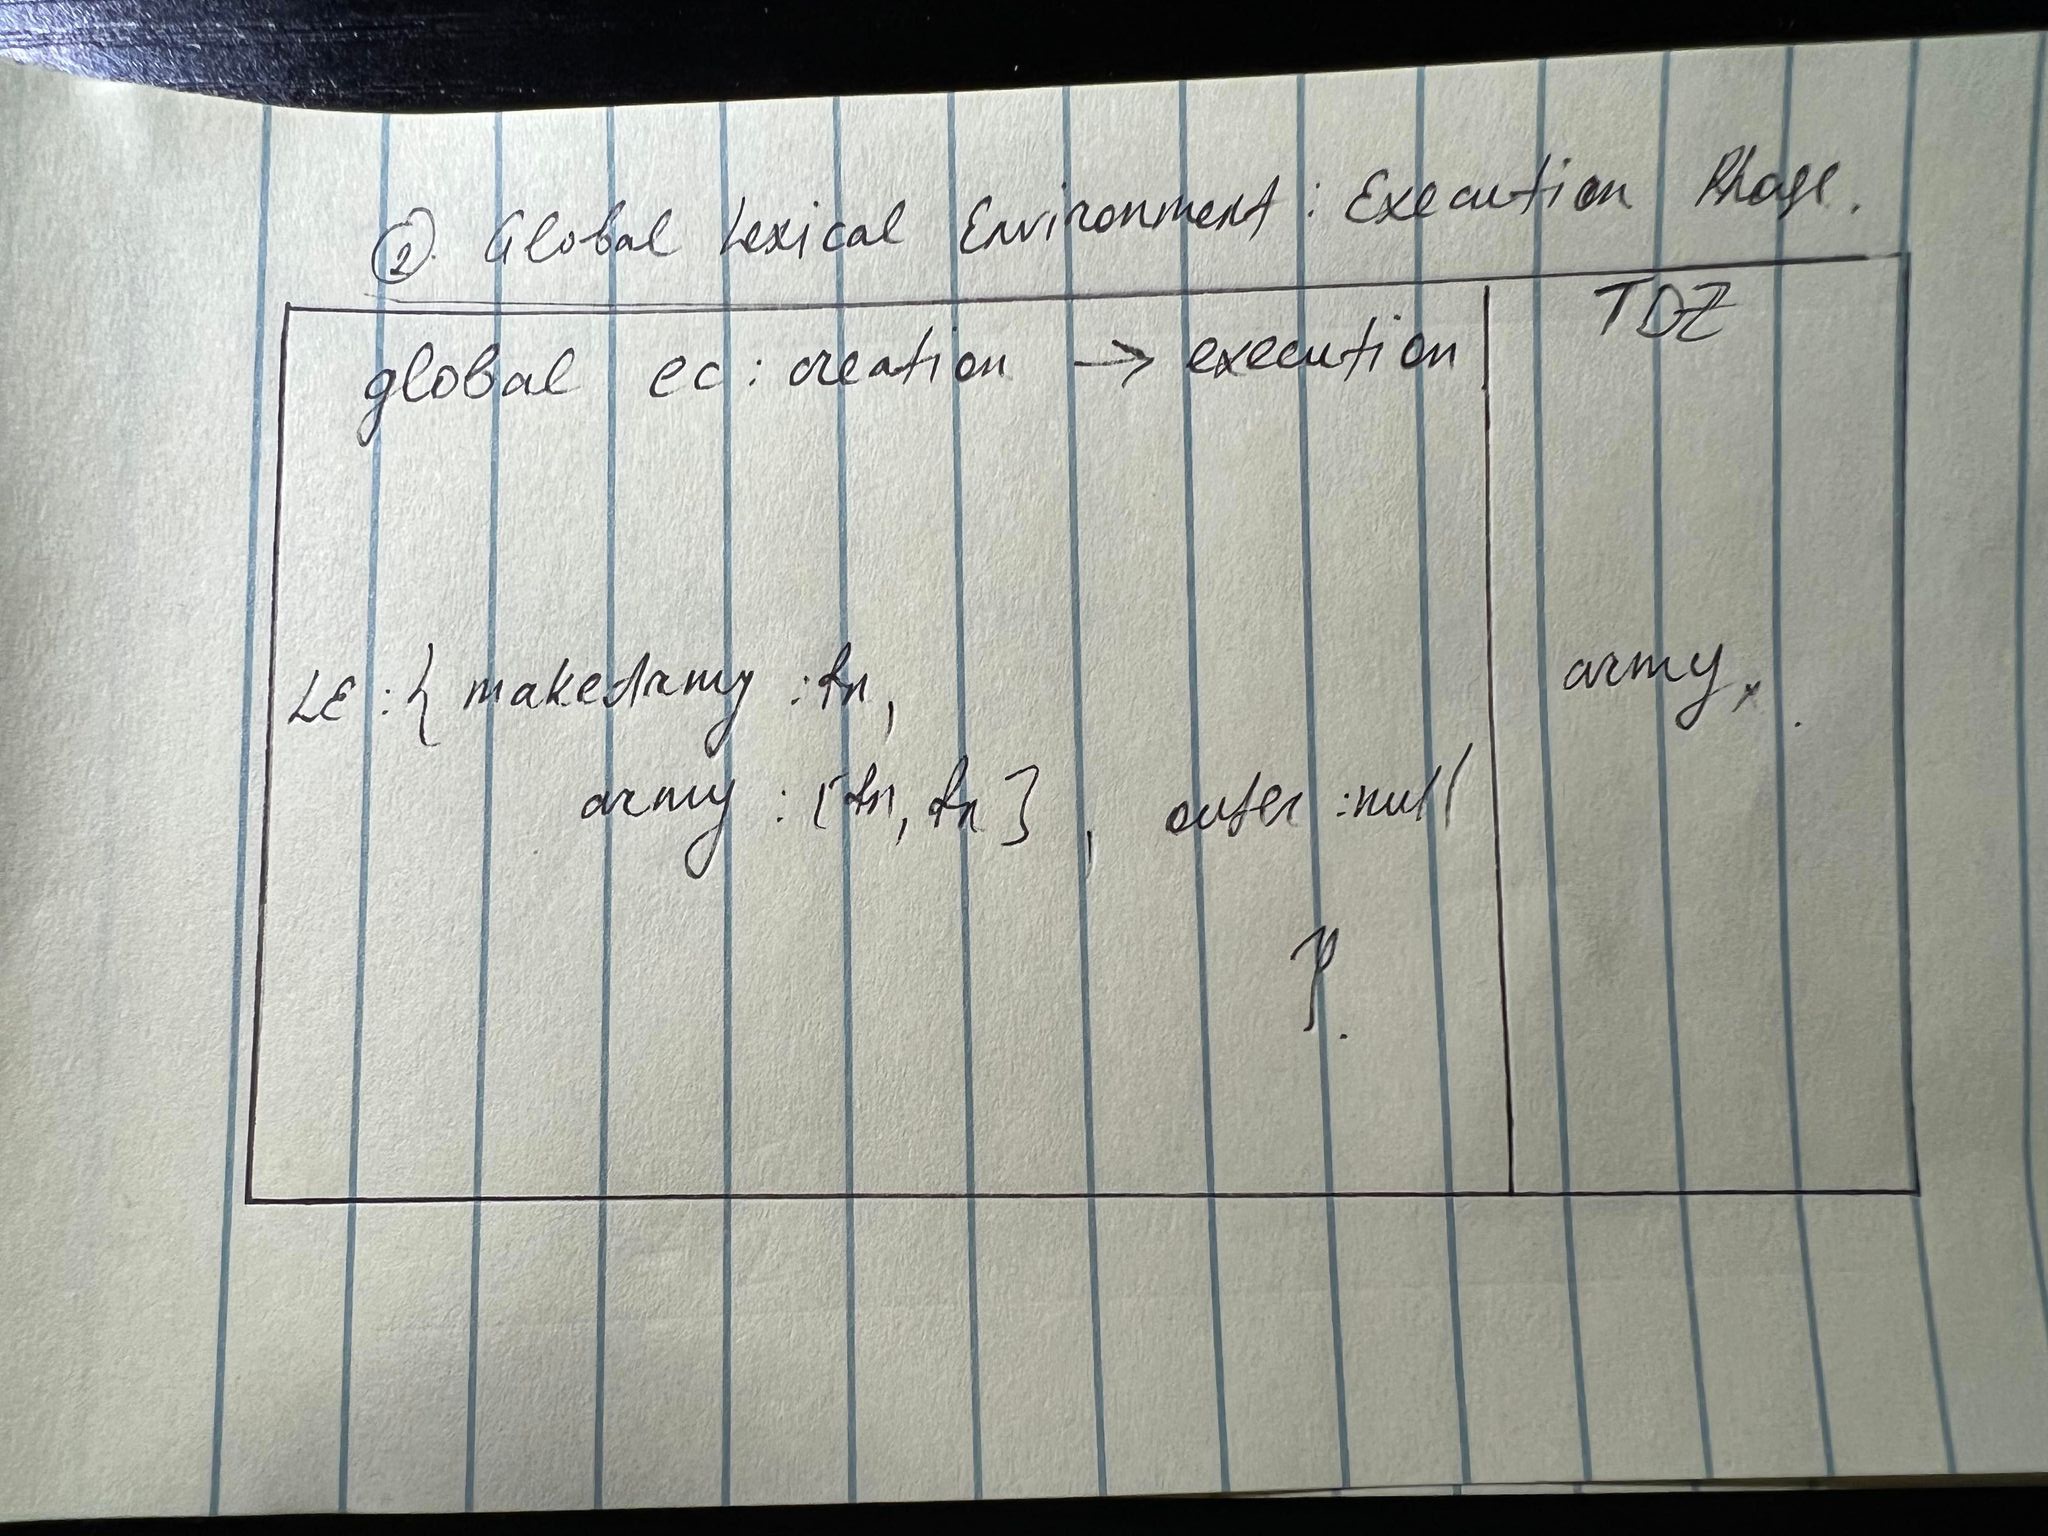 ②. Global Lexical Environment : Execution Phase.
global ec : creation → execution
TDZ
LE : { makeArmy : fn,
army.
army : [fn, fn] , outer : null
}.